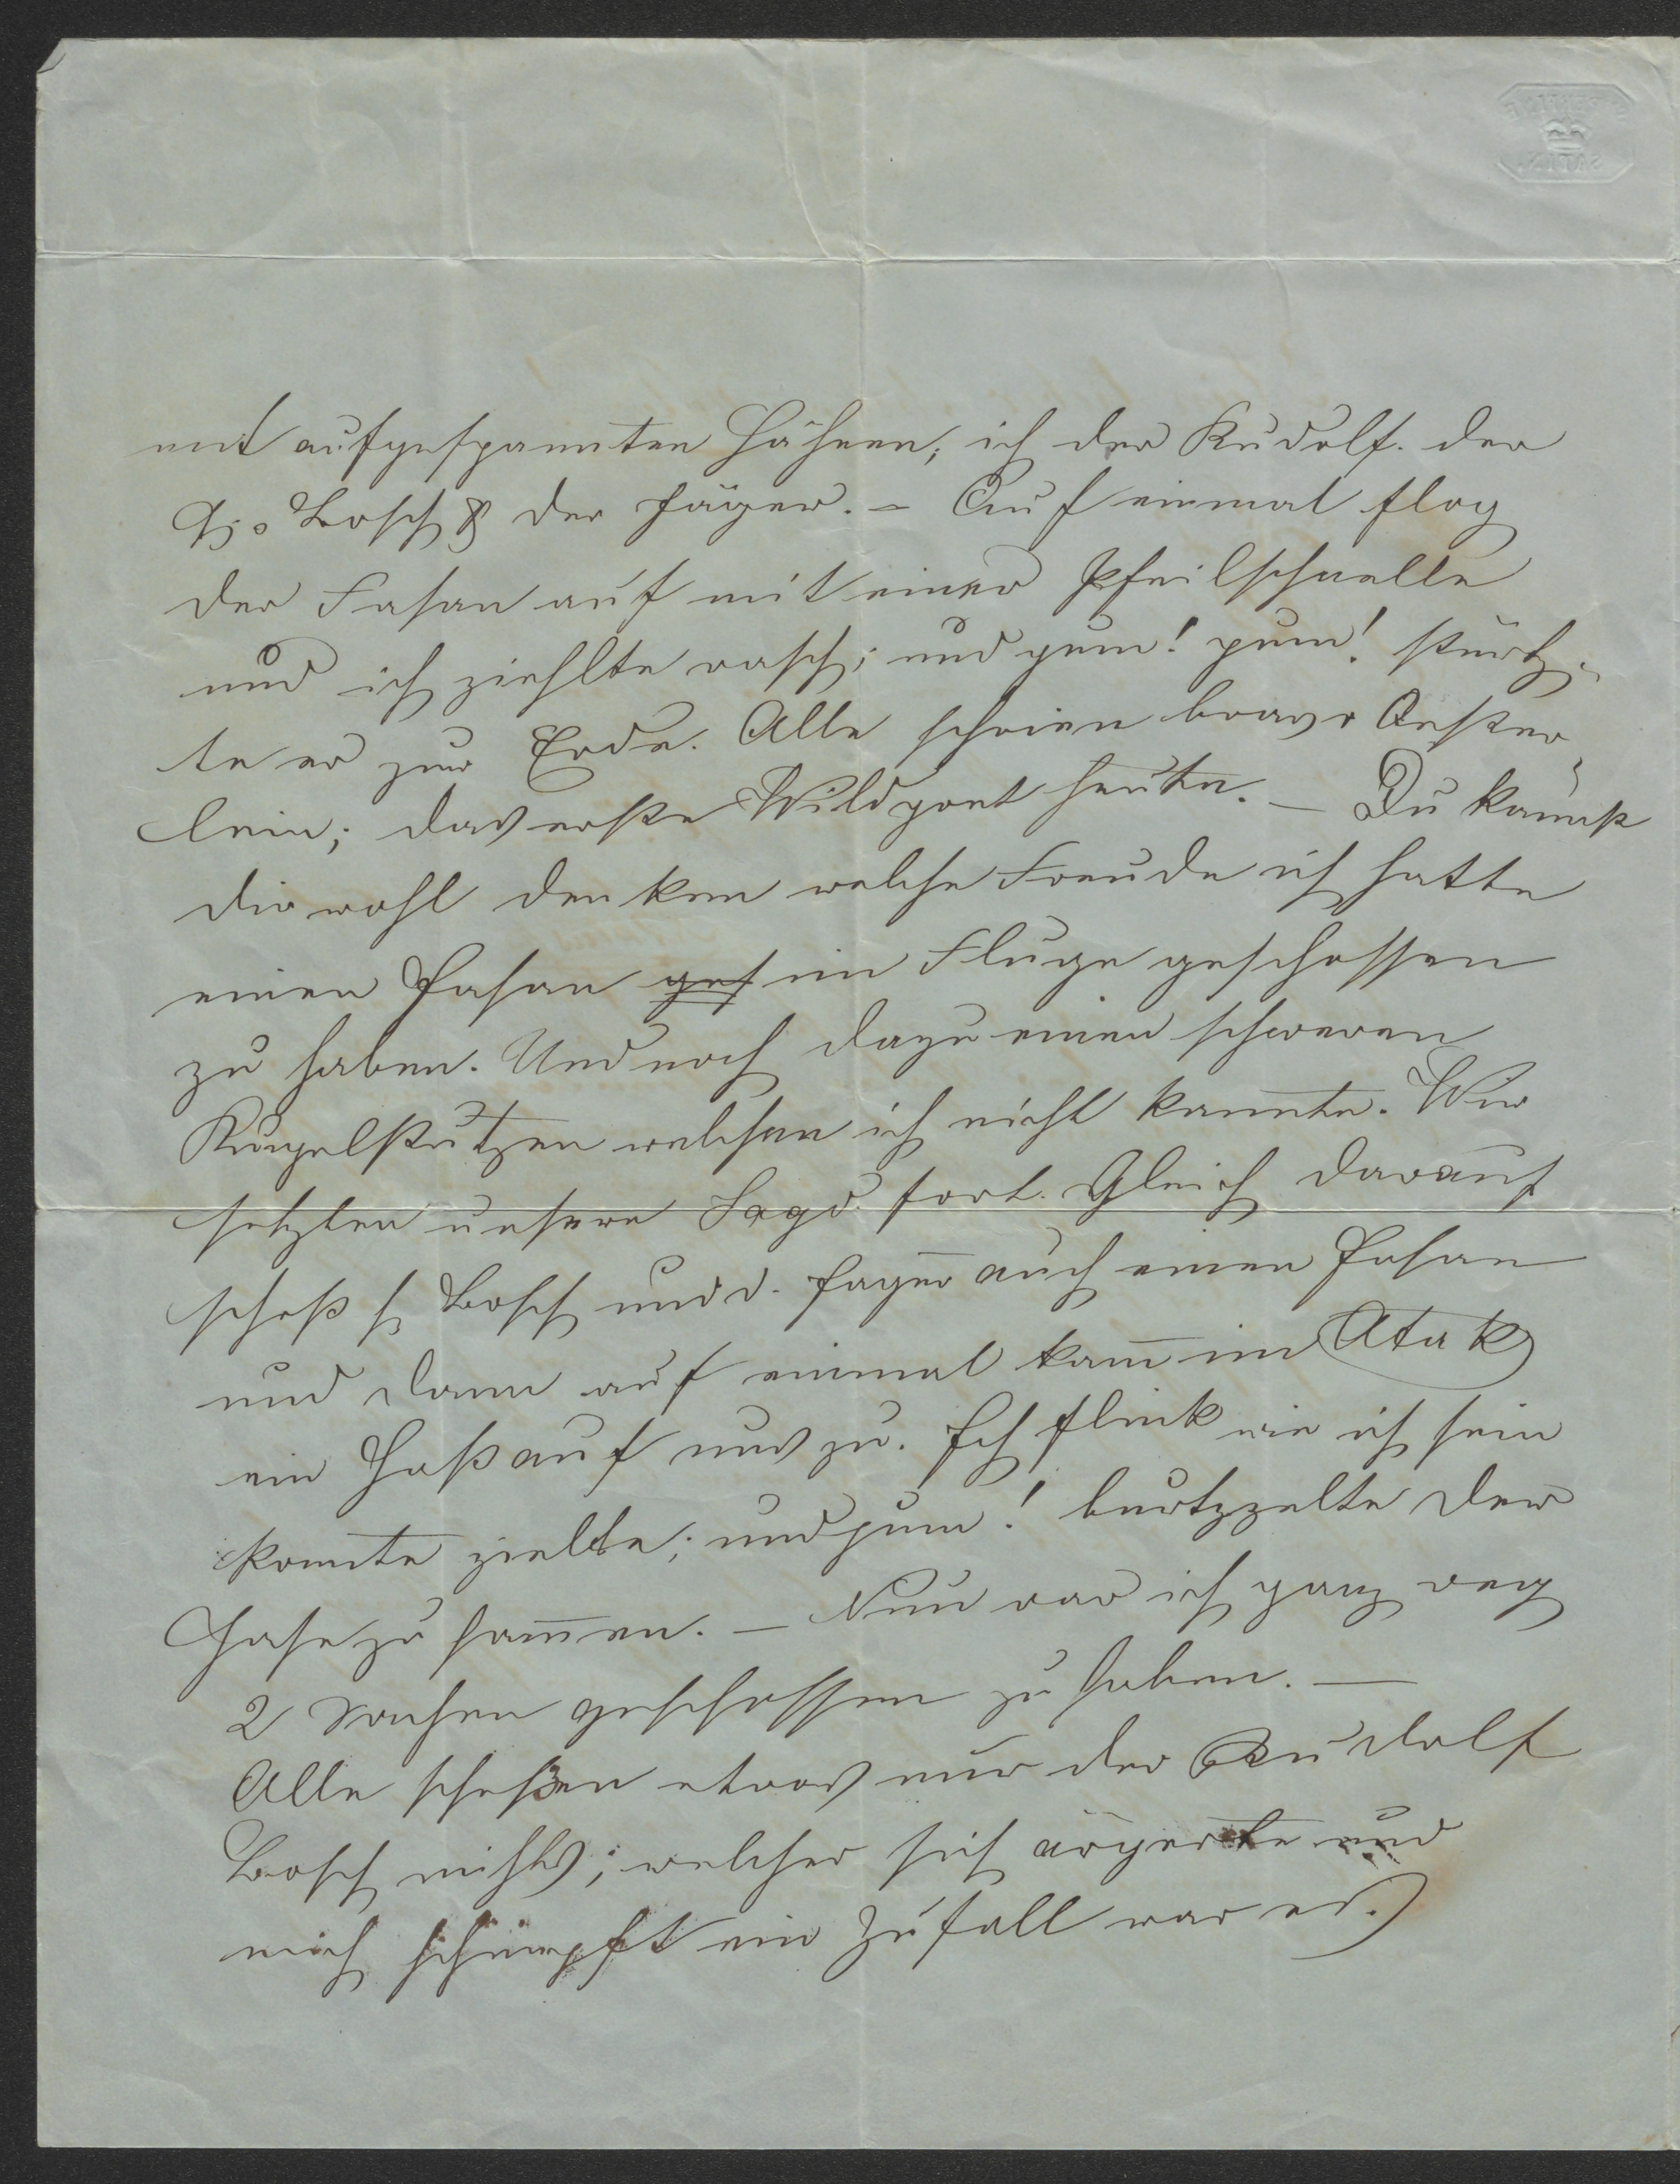 mit aufgespannten Hähnen, ich der Rudolf. der
H. Bosch & der Jäger. – Auf einmal flog
der Fasan auf mit einer Pfeilschnelle
und ich ziehlte rasch; und pum! pum! stürtz-
te er zur Erde. Alle schrien bravo Oester
lein; das erste Wildpret heute. – Du kannst
dir wohl denken welche Freude ich hatte
einen Fasan ges im Fluge geschossen
zu haben. Und noch dazu einen schweren
Kugelstutzen welchen ich nicht kannte. Wir
setzten unsere Jagd fort. Gleich darauf
schoß H Bosch und d. Jager auch einen Fasan
und dann auf einmal kam̄ im Atak
ein Haß auf uns zu. Ich flink wie ich sein
konnte zielte; und pum! burtzzelte der
Hase zusam̄en. – Nun war ich ganz weg
2 Sachen geschossen zu haben. –
Alle schoßen etwas nur der Rudolf
Bosch nichts; welcher sich ärgerte und
mich schimpft ein Zufall war es.